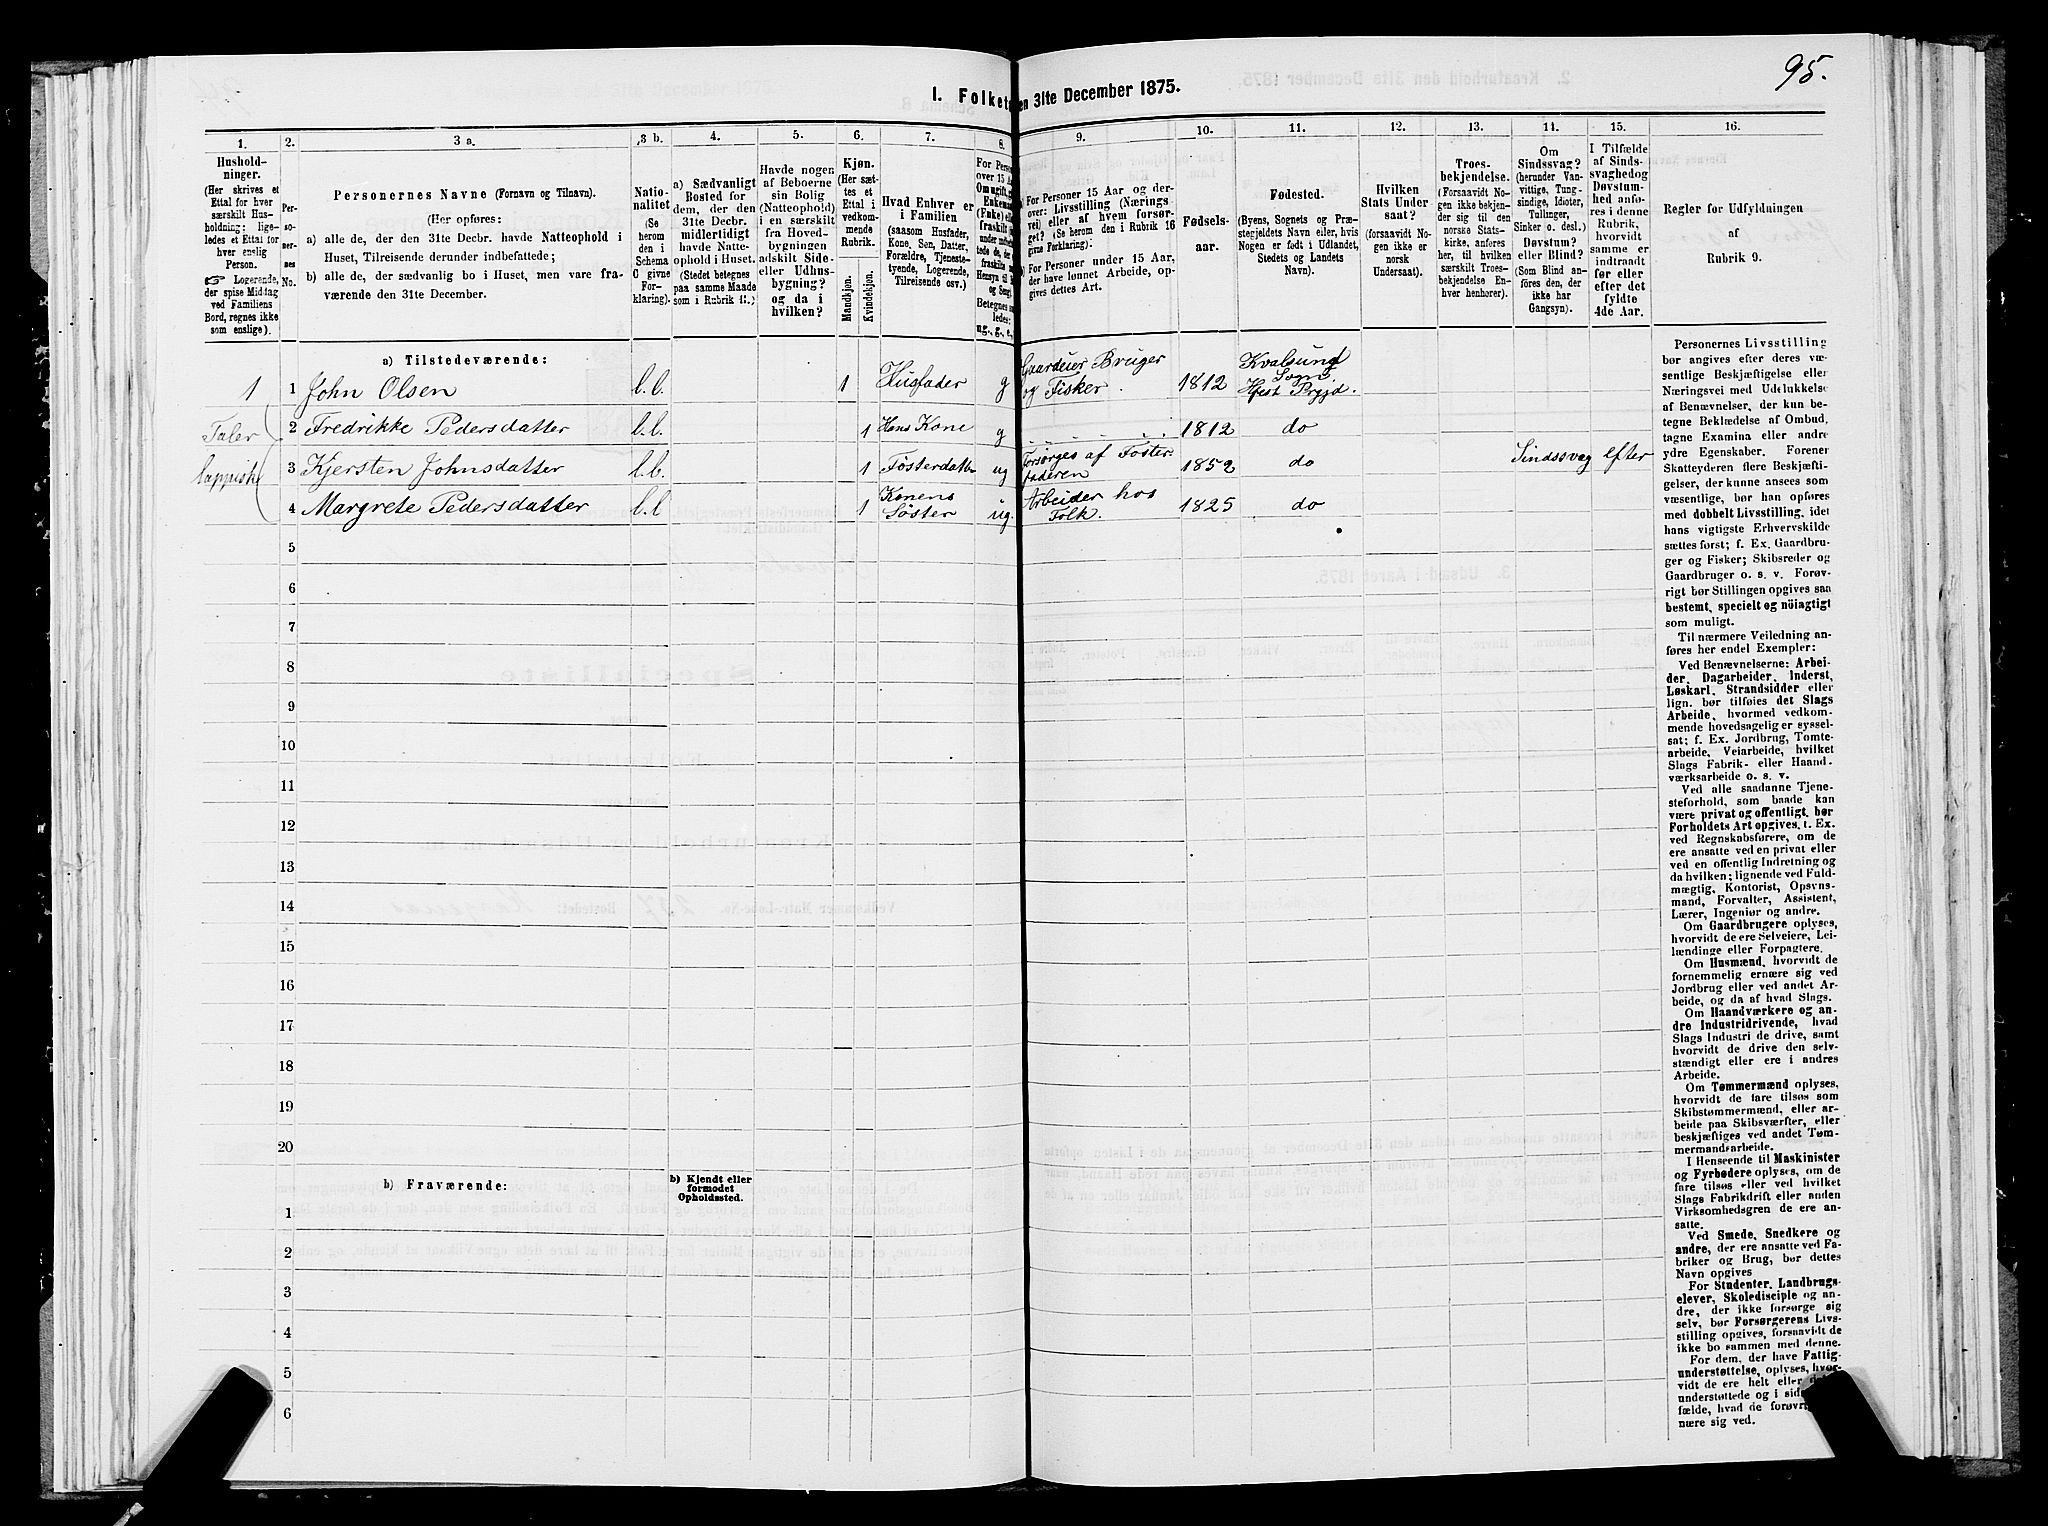 95.
I. Folket
en 31te December 1875.
1.
Hushold-
ninger.
(Her skrives et
Ettal for hver
særskilt Hus-
holdning; lige-
ledes et Ettal for
hver enslig
Person.
☞ Logerende,
der spise Middag
ved Familiens
Bord, regnes ikke
som enslige).
2.
Per-
so-
ner-
nes
No.
3 a.
Personernes Navne (Fornavn og Tilnavn).
(Her opføres:
a) alle de, der den 31te Decbr. havde Natteophold i
Huset, Tilreisende derunder indbefattede;
b) alle de, der sædvanlig bo i Huset, men vare fra-
værende den 31te December.
3 b.
Natio-
nalitet
(Se
herom
den i
Schema
C givne
For-
klaring).
4.
a) Sædvanligt
Bosted for
dem, der den
31te Decbr.
midlertidigt
havde Natte-
ophold i Huset.
(Stedet betegnes
paa samme Maade
som i Rubrik 11.)
5.
Havde nogen
af Beboerne
sin Bolig
(Natteophold)
i en særskilt
fra Hoved-
bygningen
adskilt Side-
eller Udhus-
bygning?
og da i
hvilken?
6.
Kjøn.
(Her sæt-
tes et
Ettal i
vedkom-
mende
Rubrik.
Mandkjøn.
Kvindekjøn.
7.
Hvad Enhver er
i Familien
(saasom Husfader,
Kone, Søn, Datter,
Forældre, Tjeneste-
tyende, Logerende,
Tilreisende osv.)
8.
For Perso
over 15 A
Om ugift, g
Enkema
(Enke) el
fraskilt
9.
a) For Personer 15 Aar og der-
over: Livsstilling (Nærings-
vei) eller af hvem forsør-
get? (Se herom den i Rubrik 16
givne Forklaring):
b) For Personer under 15 Aar,
der have lønnet Arbeide, op-
gives dettes Art.
10.
Fødsels-
aar.
11.
Fødested.
(Byens, Sognets og Præ-
stegjeldets Navn eller, hvis
Nogen er født i Udlandet,
Stedets og Landets
Navn).
12.
Hvilken
Stats Under-
saat?
(forsaavidt No-
gen ikke er
norsk
Undersaat).
13.
Troes-
bekjendelse.
(Forsaavidt No-
gen ikke bekjen-
der sig til den
norske Stats-
kirke, anføres
her, til hvilken
særskilt Troes-
bekjendelse En-
hver henhører).
14.
Om
Sindssvag?
(herunder Van-
vittige, Tung-
sindige, Idioter,
Tullinger,
Sinker o. desl.)
Døvstum?
eller Blind?
(Som Blind an-
føres den, der
ikke har
Gangsyn).
15.
I Tilfælde
af Sinds-
svaghed og
Døvstum-
hed anfø-
res i denne
Rubrik,
hvorvidt
samme er
indtraadt
før eller
efter det
fyldte
4de Aar.
16.
Regler for Udfyldningen
af
Rubrik 9.
a) Tilstedeværende:
1 1 John Olsen l.l. 1 Husfader g Gaardeier Bruger
og Fisker. 1812 Kvalsund
Sogn
Hfest Prgjd.
Taler 2 Fredrikke Pedersdatter l.l. 1 Hans Kone g 1812 do
lappisk 3 Kjersten Johnsdatter l.l. 1 Fösterdatte ug Forsørges af Foster
faderen 1852 do Sindssvag efter
4 Margrete Pedersdatter l.l 1 Konens
Söster ug. Arbeider hos
Folk. 1825 do
5
6
7
8
9
10
11
12
13
14
15
16
17
18
19
20
b) Fraværende:
b) Kjendt eller
formodet
Opholdssted.
1
2
3
4
5
6
Personernes Livsstilling
bør angives efter deres væ-
sentlige Beskjæftigelse eller
Næringsvei med Udelukkelse
af Benævnelser, der kun be-
tegne Beklædelse af Ombud,
tagne Examina eller andre
ydre Egenskaber. Forener
Skatteyderen flere Beskjæfti-
gelser, der kunne ansees som
væsentlige, bør han opføres
med dobbelt Livsstilling, idet
hans vigtigste Erhvervskilde
sættes først; f. Ex. Gaardbru-
ger og Fisker; Skibsreder og
Gaardbruger o. s. v. Forøv-
rigt bør Stillingen opgives saa
bestemt, specielt og nøiagtigt
som muligt.
Til nærmere Veiledning an-
føres her endel Exempler:
Ved Benævnelserne: Arbei-
der, Dagarbeider, Inderst,
Løskarl, Strandsidder eller
lign. bør tilføies det Slags
Arbeide, hvormed vedkom-
mende hovedsagelig er syssel-
sat; f. Ex. Jordbrug, Tomte-
arbeide, Veiarbeide, hvilket
Slags Fabrik- eller Haand-
værksarbeide o. s. v.
Ved alle saadanne Tjene-
steforhold, som baade kan
være privat og offentligt, bør
Forholdets Art opgives, t. Ex.
ved Regnskabsførere, om de
ere ansatte ved en privat eller
ved en offentlig Indretning og
da hvilken; lignende ved Fuld-
mægtig, Kontorist, Opsyns-
mand, Forvalter, Assistent,
Lærer, Ingeniør og andre.
Om Gaardbrugere oplyses,
hvorvidt de ere Selveiere, Lei-
lændinge eller Forpagtere.
Om Husmænd, hvorvidt de
fornemmelig ernære sig ved
Jordbrug eller ved andet Ar-
beide, og da af hvad Slags.
Om Haandværkere og an-
dre Industridrivende, hvad
Slags Industri de drive, samt
hvorvidt de drive den selv-
stændigt eller ere i andres
Arbeide.
Om Tømmermænd oplyses,
hvorvidt de fare tilsøs som
Skibstømmermænd, eller ar-
beide paa Skibsværfter, eller
beskjæftiges ved andet Tøm-
mermandsarbeide.
I Henseende til Maskinister
og Fyrbødere oplyses, om de
fare tilsøs eller ved hvilket
Slags Fabrikdrift eller anden
Virksomhedsgren de ere an-
satte.
Ved Smede, Snedkere og
andre, der ere ansatte ved Fa-
briker og Brug, bør dettes
Navn opgives
For Studenter, Landbrugs-
elever, Skoledisciple og an-
dre, der ikke forsørge sig
selv, bør Forsørgerens Livs-
stilling opgives, forsaavidt de
ikke bo sammen med denne.
For dem, der have Fattig-
understøttelse, oplyses, hvor-
vidt de ere helt eller
understøttede og i
fælde, hvad de
nære sig ved.